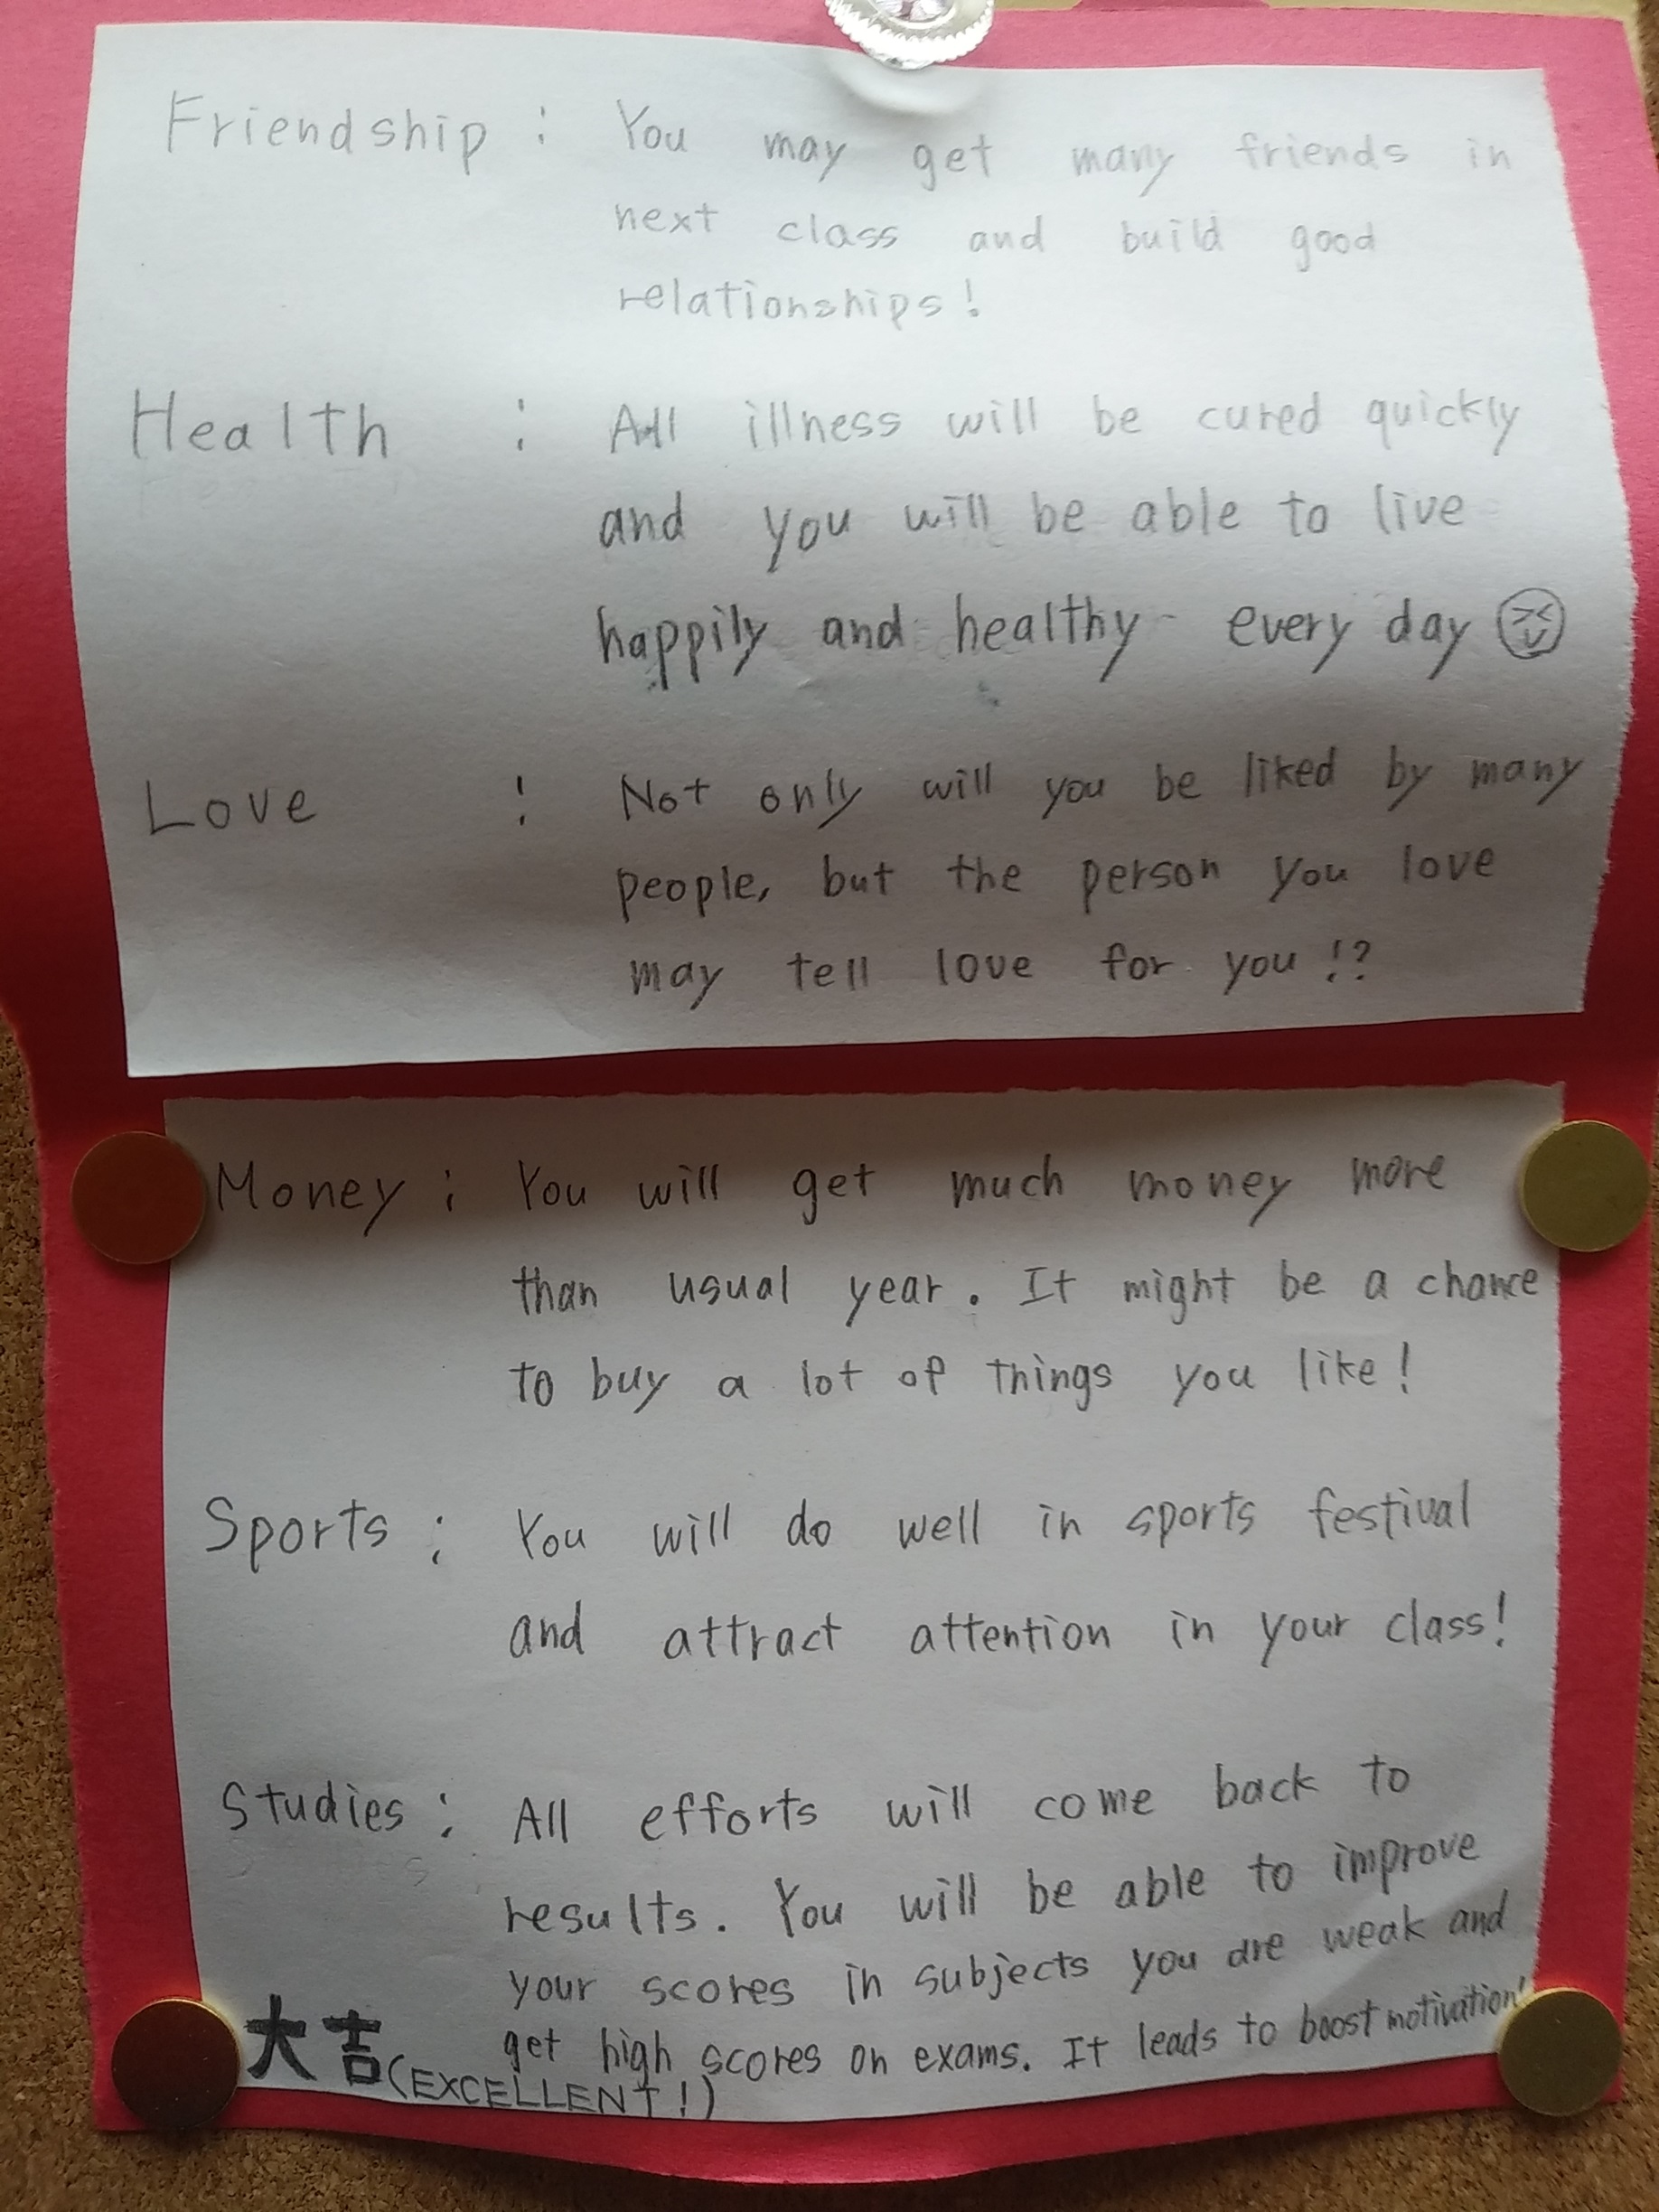 Friendship : You may get many friends in
next class and build good
relationships!
Health : All illness will be cured quickly
and you will be able to live
happily and healthy every day
Love : Not only will you be liked by many
people, but the person you love
may tell love for you !?
Money : You will get much money more
than usual year. It might be a chance
to buy a lot of things you like!
Sports : You will do well in sports festival
and attract attention in your class!
Studies : All efforts will come back to
results. You will be able to improve
your scores in subjects you are weak and
get high scores on exams. It leads to boost motivation!
大吉(EXCELLENT!)